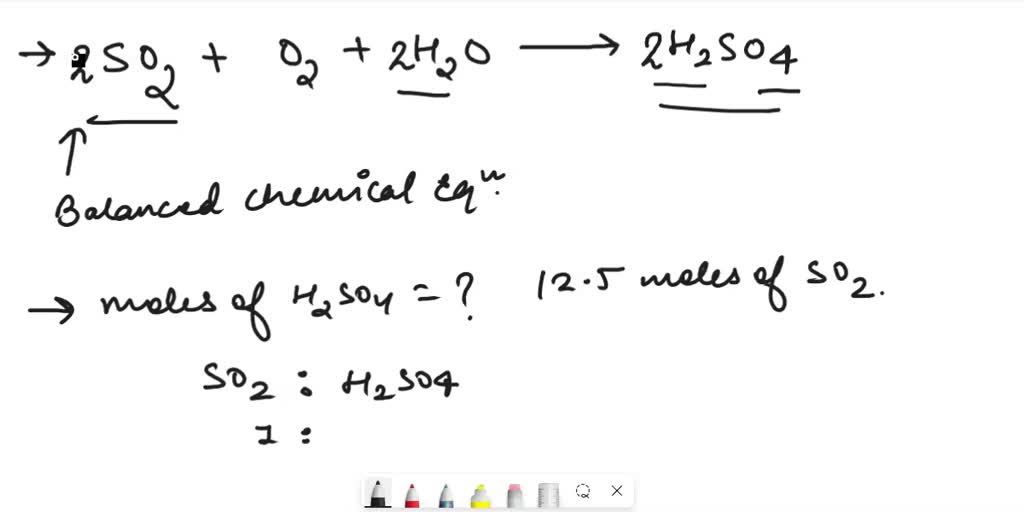 → 2SO₂ + O₂ + 2H₂O ⟶ 2H₂SO₄
Balanced chemical Eqⁿ.
→ moles of H₂SO₄ = ? 12.5 moles of SO₂.
SO₂ : H₂SO₄
1 :